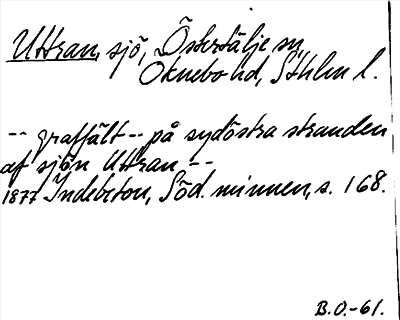 Uttran, sjö, Östertälje sn,
Öknebo hd, Sthlm l.
-- graffält -- på sydöstra stranden
af sjön Uttran --
1877 Indebetou, Söd. minnen, s. 168.
B.O.-61.